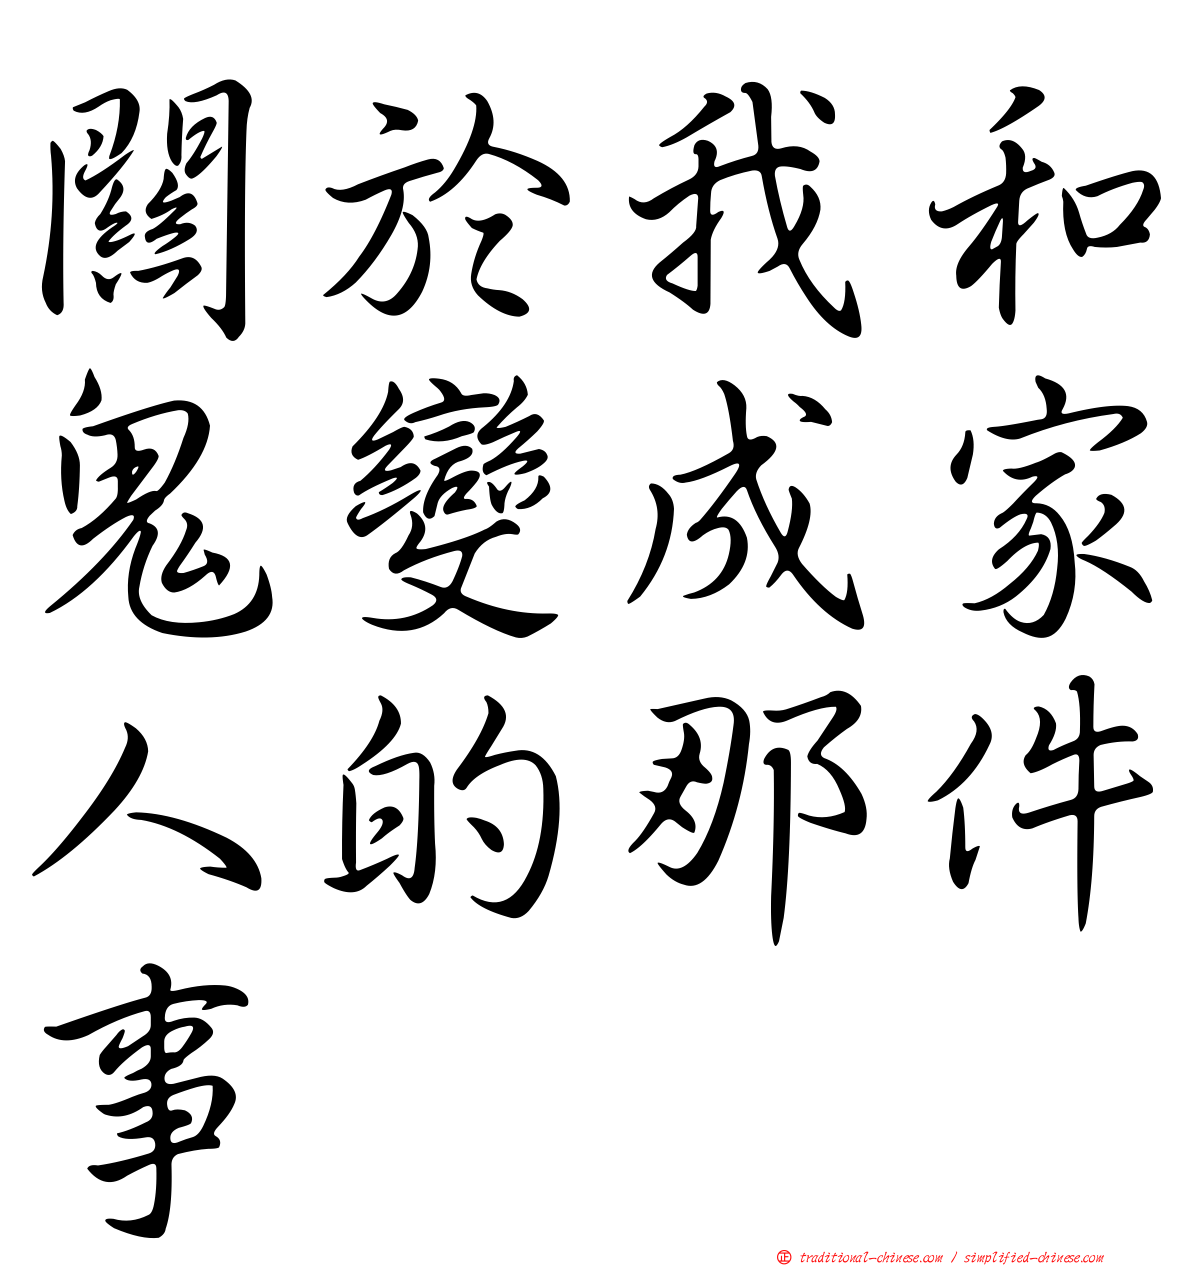 關於我和
鬼變成家
人的那件
事
正 traditional-chinese.com / simplified-chinese.com